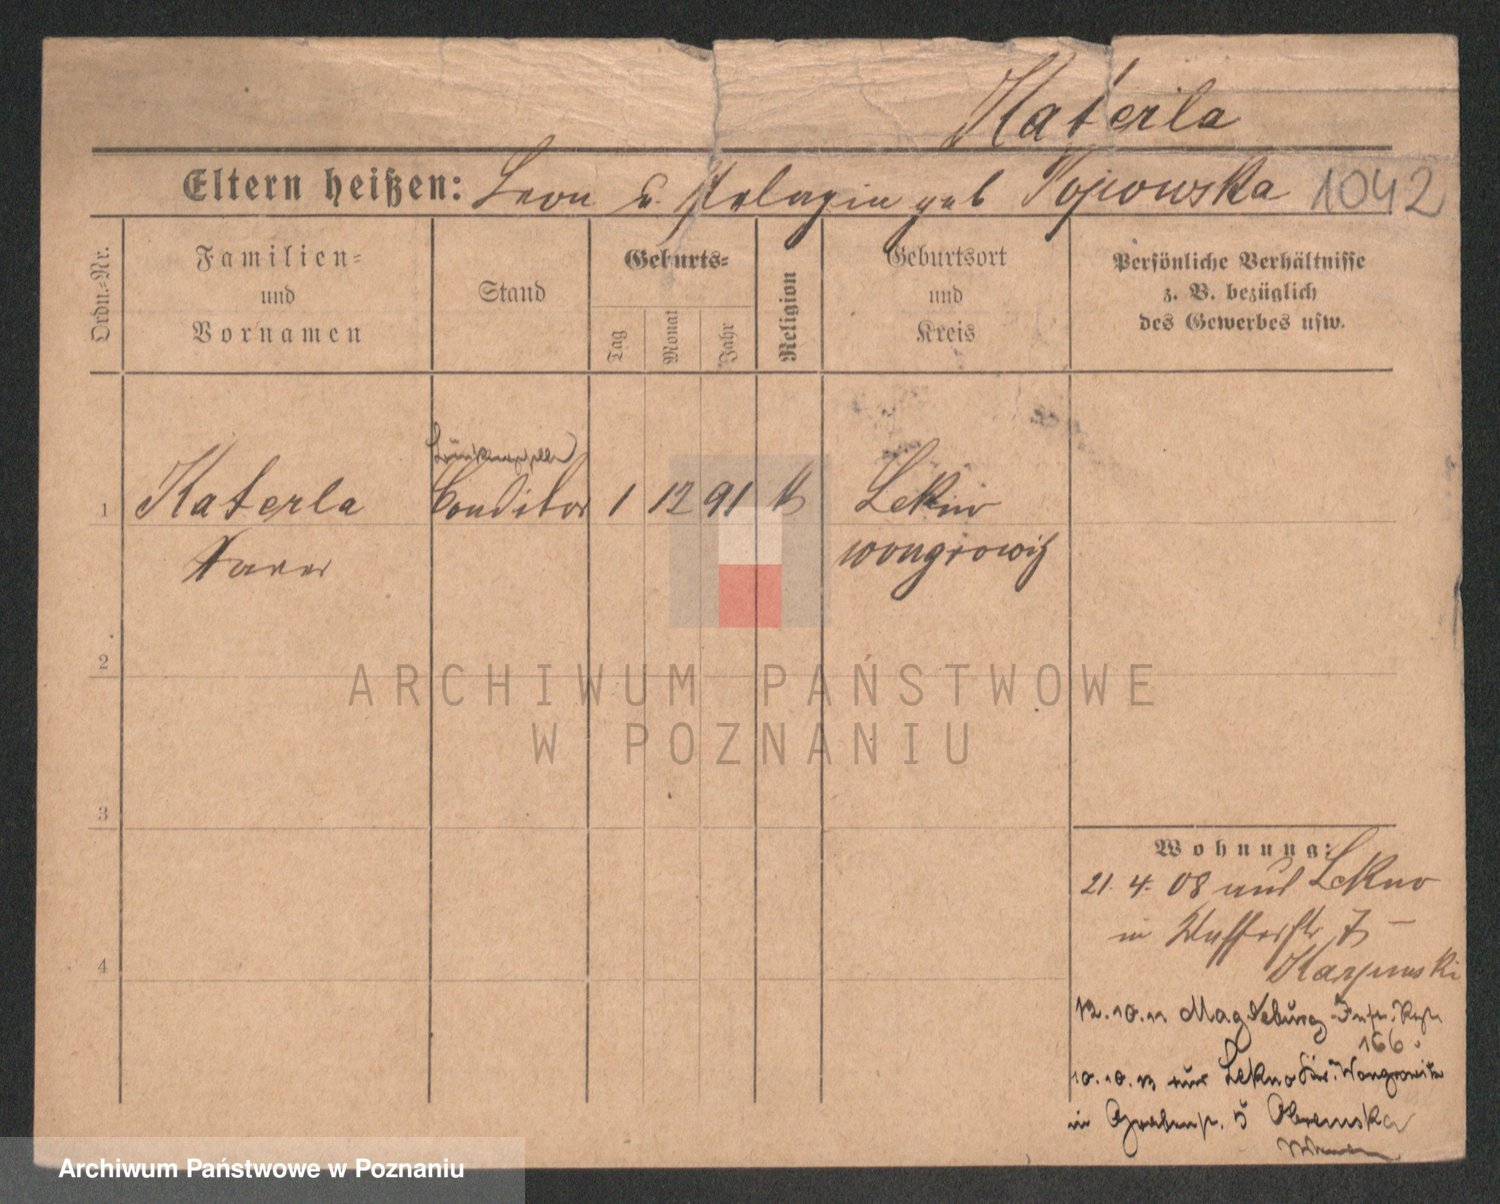 Katerla
Eltern heißen: Leon u. Pelagia geb Popowska 1042
Ordn.-Nr.
Familien-
und
Vornamen
Stand
Geburts-
Tag
Monat
Jahr
Religion
Geburtsort
und
Kreis
Persönliche Verhältnisse
z. B. bezüglich
des Gewerbes usw.
1 Katerla Conditor 1 12 91 k Lekno
Xaver wongrowitz
2
ARCHIWUM PAŃSTWOWE
W POZNANIU
3
Wohnung:
21. 4. 08 aus Lekno
in 7
4
12.10.11 Magdeburg Inftr. Regt.
166.
10.10.13 aus Lekno Kr. Wongrowitz
in Grabenstr. 5
Archiwum Państwowe w Poznaniu